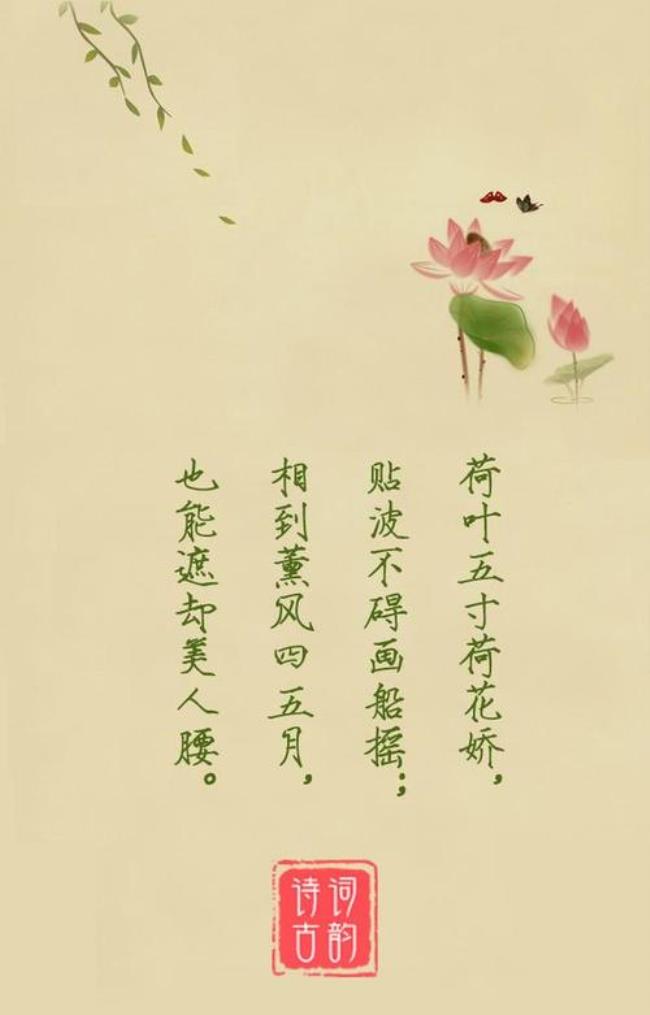 荷叶五寸荷花娇，
贴波不碍画船摇；
相到薰风四五月，
也能遮却美人腰。
诗词
古韵